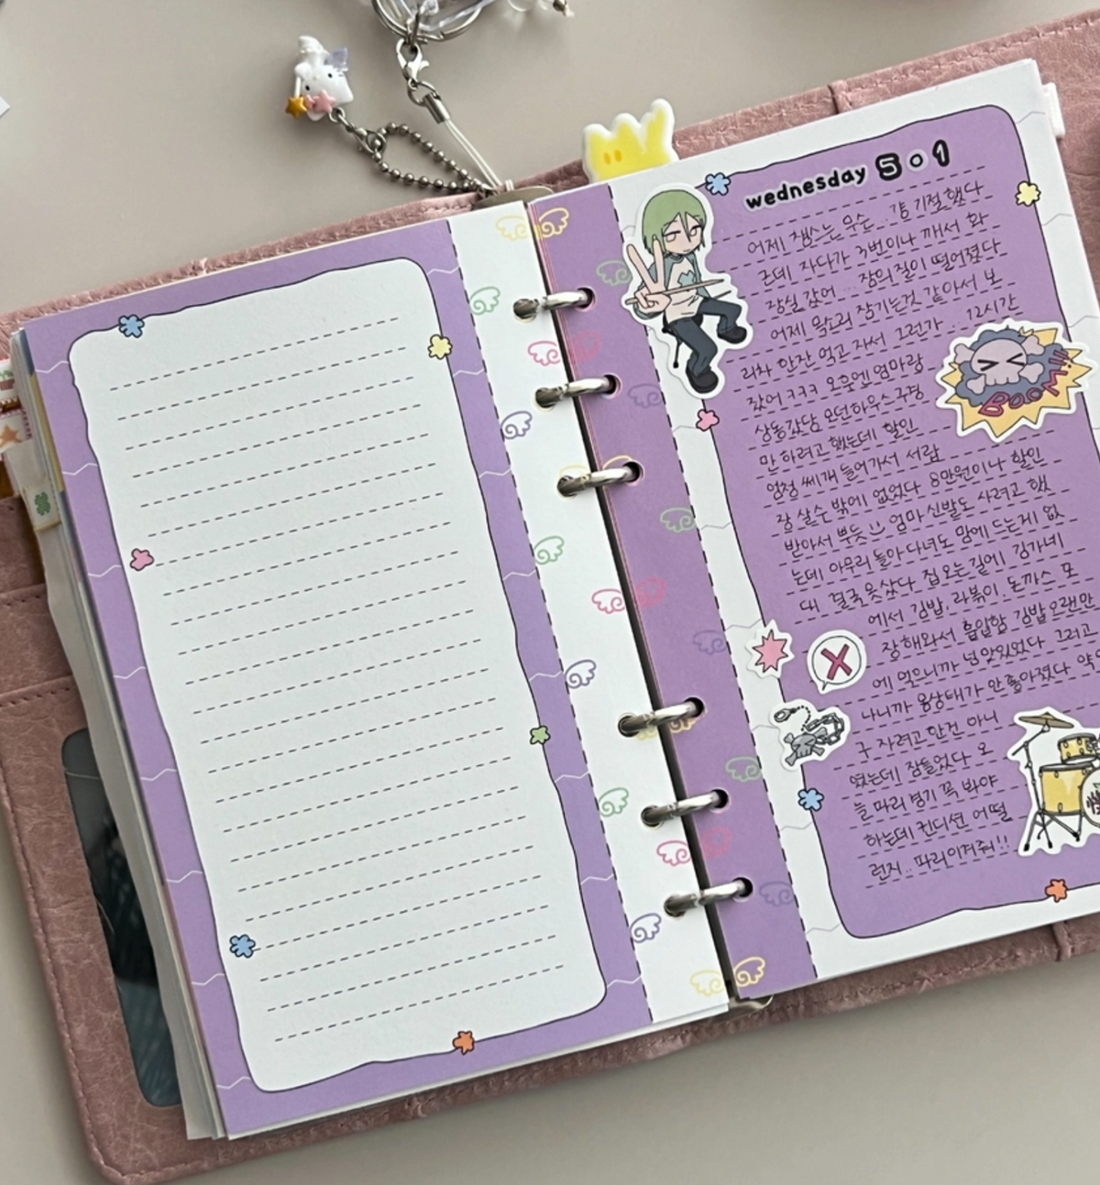 wednesday 5.1
어제 잼스는 무슨.. 걍 기절했다
근데 자다가 3번이나 깨서 화
장실 갔어... 잠의 질이 떨어졌다
어제 목소리 잠기는것 같아서 보
리차 한잔 먹고 자서 그런가... 12시간
잤어 ㅋㅋㅋ 오후엔 엄마랑
상동갔당 모던하우스 구경
만 하려고 했는데 할인
엄청 쎄게 들어가서 서랍
장 살수 밖에 없었다 8만원이나 할인
받아서 뿌듯 엄마 신발도 사려고 했
는데 아무리 돌아다녀도 맘에 드는게 없
대 결국 못샀다 집 오는길에 김가네
에서 김밥, 라볶이, 돈까스 포
장해와서 흡입함 김밥 오랜만
에 먹으니까 넘 맛있었다 그러고
나니까 몸상태가 안좋아졌다
구 자려고 한건 아니
였는데 잠들었다 오
늘 파리 경기 꼭 봐야
하는데 컨디션 어떨
런지.. 파리 이겨줘!!
BOOM!!
X